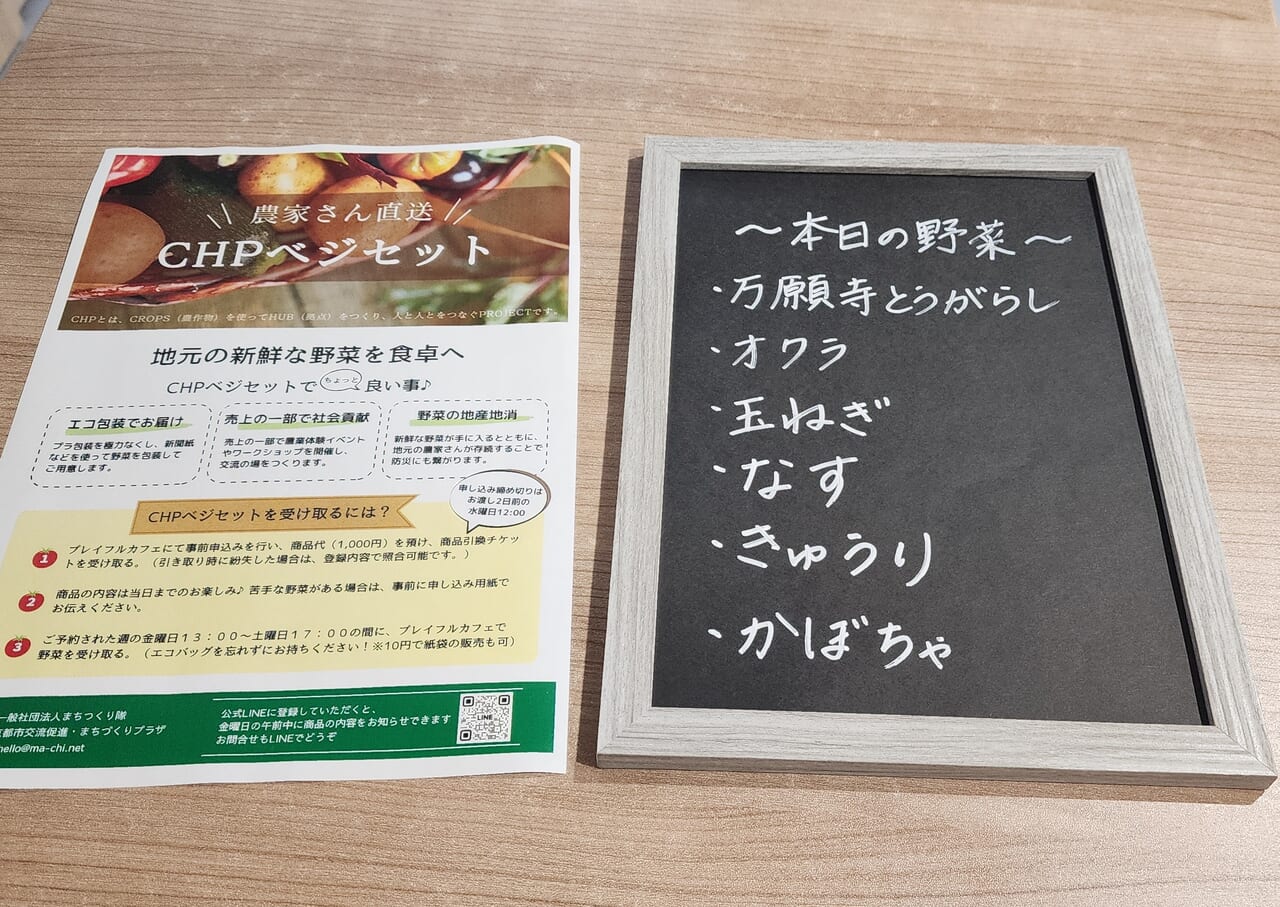 農家さん直送
CHPベジセット
CHPとは、CROPS（農作物）を使ってHUB（拠点）をつくり、人と人とをつなぐPROJECTです。
地元の新鮮な野菜を食卓へ
CHPベジセットで ちょっと 良い事♪
エコ包装でお届け
プラ包装を極力なくし、新聞紙
などを使って野菜を包装して
ご用意します。
売上の一部で社会貢献
売上の一部で農業体験イベント
やワークショップを開催し、
交流の場をつくります。
野菜の地産地消
新鮮な野菜が手に入るとともに、
地元の農家さんが存続することで
防災にも繋がります。
申し込み締め切りは
お渡し2日前の
水曜日12:00
CHPベジセットを受け取るには？
1 プレイフルカフェにて事前申込みを行い、商品代（1,000円）を預け、商品引換チケッ
トを受け取る。（引き取り時に紛失した場合は、登録内容で照合可能です。）
2 商品の内容は当日までのお楽しみ♪ 苦手な野菜がある場合は、事前に申し込み用紙で
お伝えください。
3 ご予約された週の金曜日１３：００〜土曜日１７：００の間に、プレイフルカフェで
野菜を受け取る。（エコバッグを忘れずにお持ちください！※10円で紙袋の販売も可）
一般社団法人まちつくり隊
京都市交流促進・まちづくりプラザ
hello@ma-chi.net
公式LINEに登録していただくと、
金曜日の午前中に商品の内容をお知らせできます
お問合せもLINEでどうぞ
LINE
〜本日の野菜〜
・万願寺とうがらし
・オクラ
・玉ねぎ
・なす
・きゅうり
・かぼちゃ